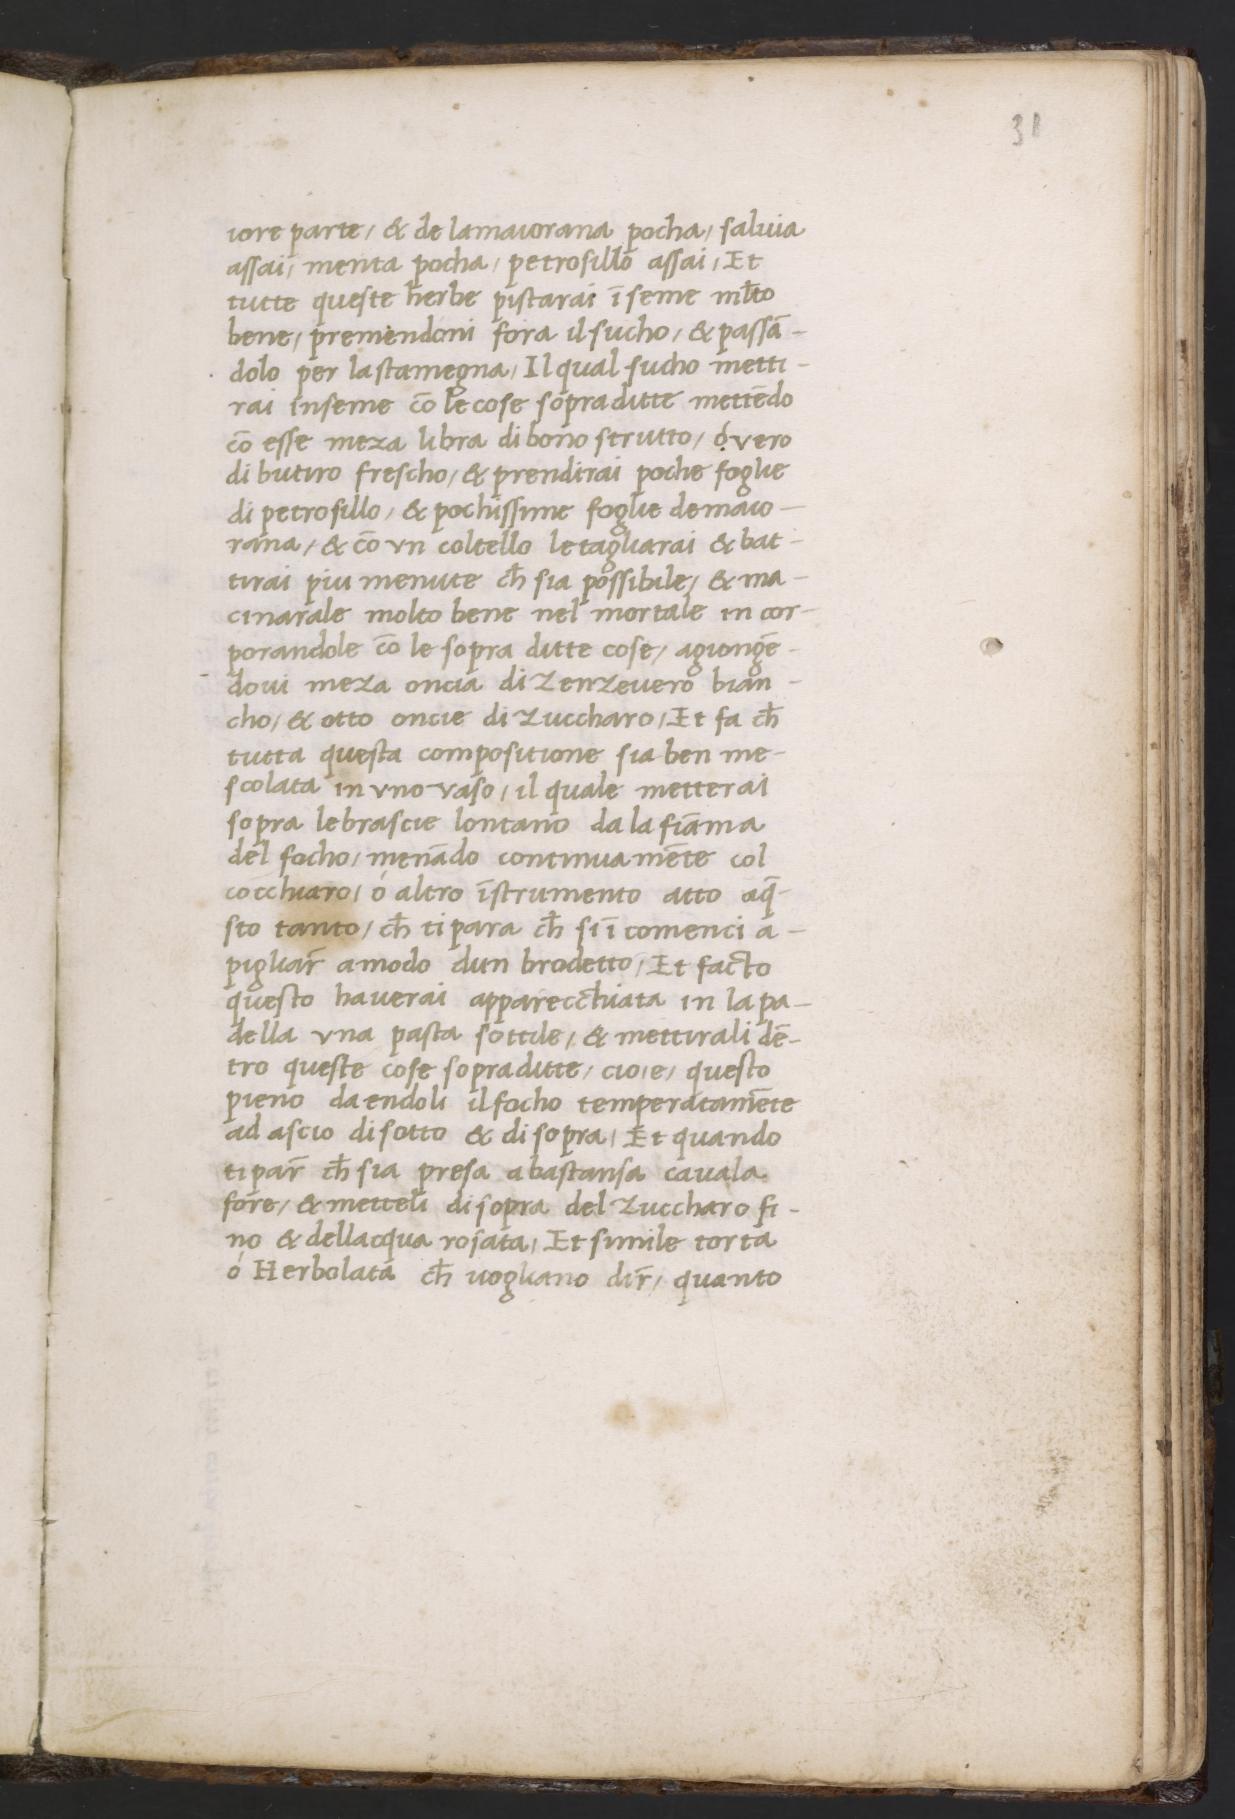 31
iore parte, & de lamaiorana pocha, saluia
assai, menta pocha, petrosillo assai, Et
tutte queste herbe pistarai ī seme mlto
bene, premendoni fora il sucho, & passā-
dolo per la stamegna, Il qual sucho metti-
rai inseme cō le cose sopraditte mettēdo
cō esse meza libra di bono strutto, ó vero
di butiro frescho, & prendirai poche foglie
di petrosillo, & pochissime foglie de maio-
rana, & cō vn coltello le tagliarai & bat-
tirai piu menute ch̄ sia possibile, & ma-
cinarale molto bene nel mortale in cor-
porandole cō le sopra ditte cose, agiongē-
doui meza oncia di Zenzeuero bian-
cho, & otto oncie di Zuccharo, Et fa ch̄
tutta questa compositione sia ben me-
scolata in vno vaso, il quale metterai
sopra le brascie lontano da la fiāma
del focho, menādo continuamēte col
cocchiaro, ó altro īstrumento atto aq̄-
sto tanto, ch̄ ti para ch̄ si ī comenci a-
pigliar̄ a modo dun brodetto, Et facto
questo hauerai apparecchiata in la pa-
della vna pasta sottile, & mettirali dē-
tro queste cose sopraditte, cio, e, questo
pieno daendoli il focho temperatamēte
ad ascio di sotto & di sopra, Et quando
ti par̄ ch̄ sia presa abastansa cauala
fore, & metteli di sopra del Zuccharo fi-
no & dellacqua rosata, Et simile torta
ó Herbolata ch̄ uogliano dir̄, quanto